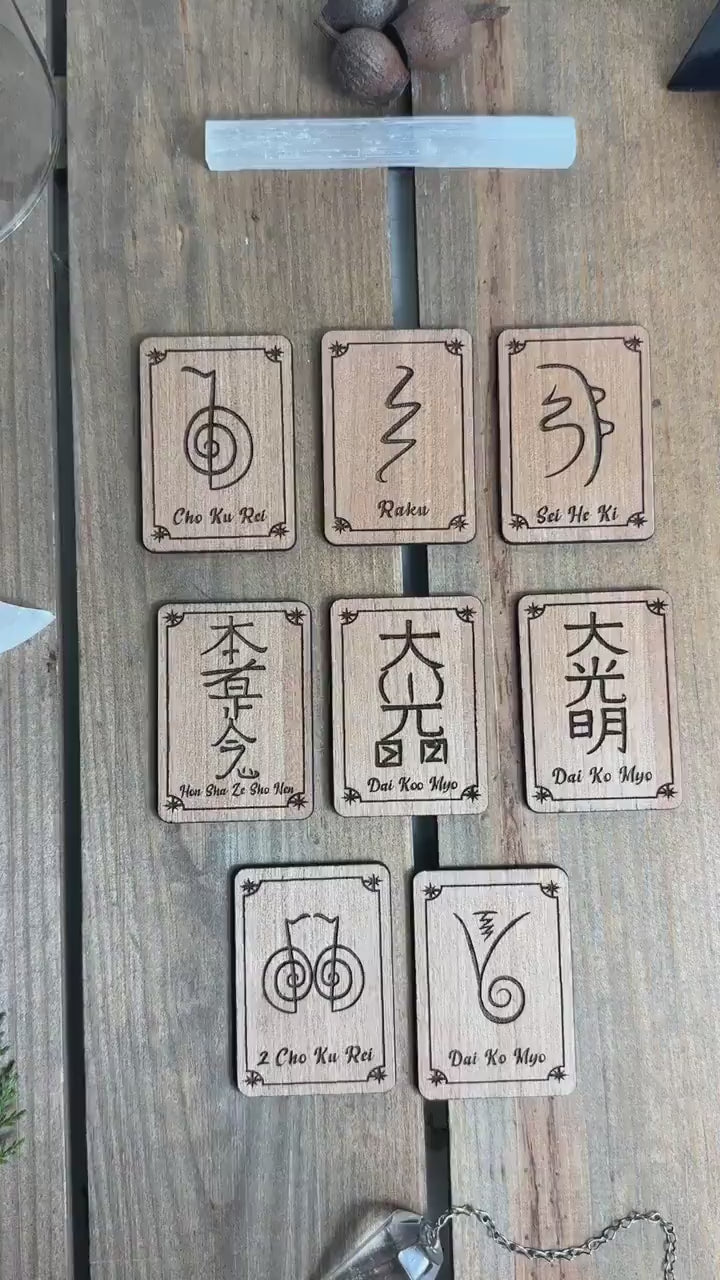 Cho Ku Rei
Raku
Sei He Ki
本
念
Hon Sha Ze Sho Nen
大
Dai Koo Myo
大
光
明
Dai Ko Myo
2 Cho Ku Rei
Dai Ko Myo